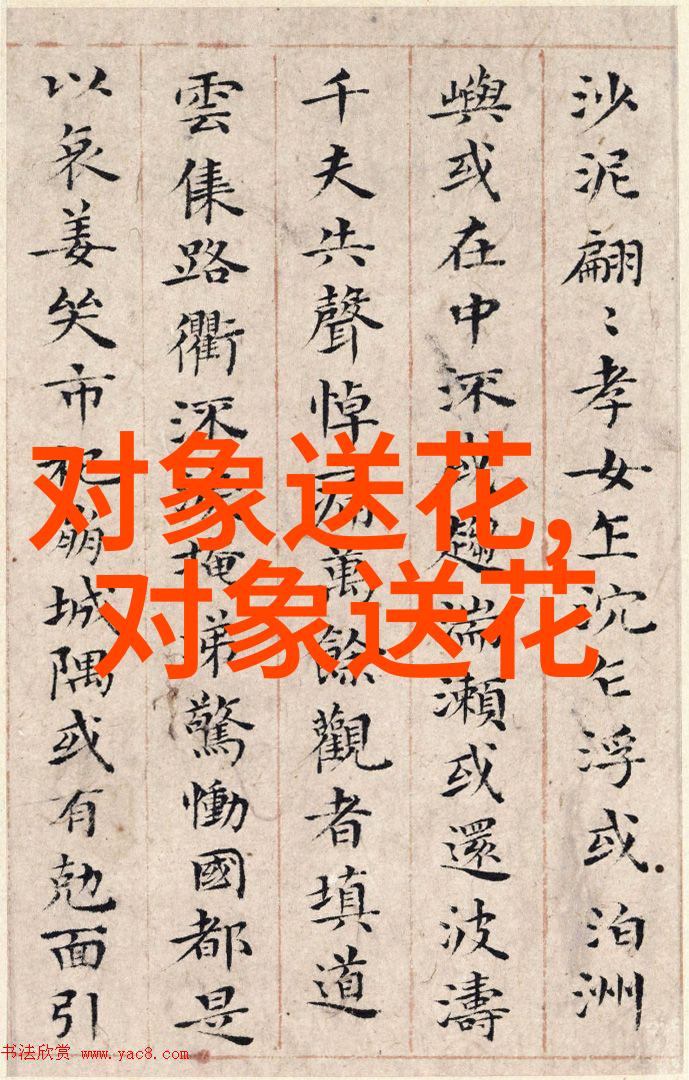 沙泥翩〻孝女乍沉乍浮或泊洲
嶼或在中深或趨湍瀨或還波濤
千夫共聲悼痛萬餘觀者填道
雲集路衢泣淚掩涕驚慟國都是
以哀姜哭市杞崩城隅或有勊面引
对象送花,
对象送花
书法欣赏 www.yac8.com